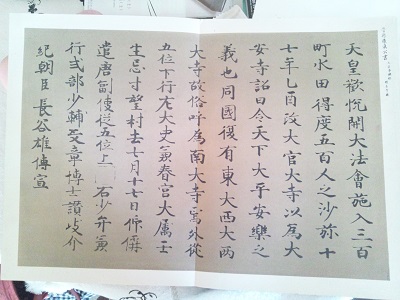 天皇歓悦開大法會施入三百
町水田得度五百人之沙弥十
七年乙酉改大官大寺以為大
安寺詔曰今天下大平安樂之
義也同國復有東大西大両
大寺故俗呼為南大寺寫外従
五位下行左大史兼春宮大属壬
生忌寸望村去七月十七日仰偁
遣唐副使従五位上 右少弁兼
行式部少輔文章博士讃岐介
紀朝臣長谷雄傳宣